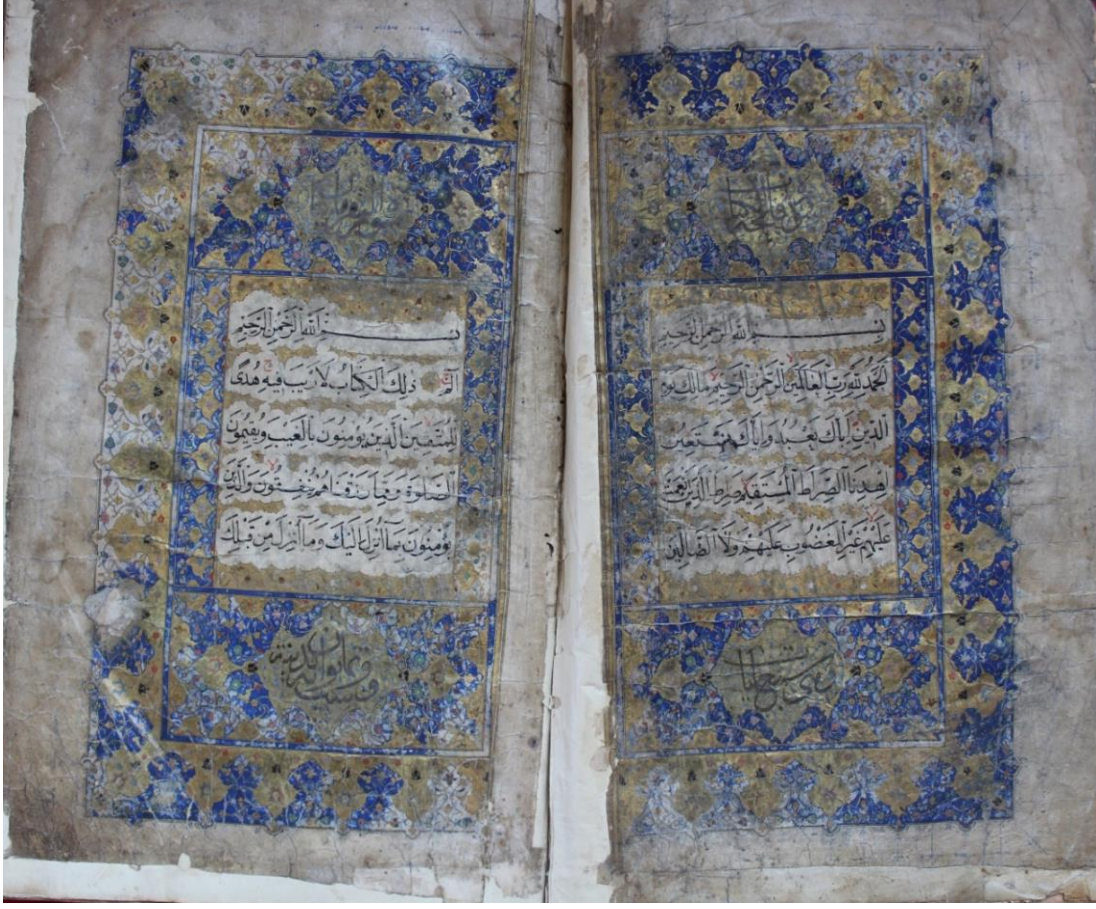 فاتحة الكتاب
بِسْمِ اللهِ الرَّحْمٰنِ الرَّحِيْمِ
اَلْحَمْدُ لِلّٰهِ رَبِّ الْعَالَمِيْنَ الرَّحْمٰنِ الرَّحِيْمِ مَالِكِ يَوْمِ
الدِّيْنِ اِيَّاكَ نَعْبُدُ وَاِيَّاكَ نَسْتَعِيْنُ
اِهْدِنَا الصِّرَاطَ الْمُسْتَقِيْمَ صِرَاطَ الَّذِيْنَ اَنْعَمْتَ
عَلَيْهِمْ غَيْرِ الْمَغْضُوْبِ عَلَيْهِمْ وَلَا الضَّالِّيْنَ
سبع آيات
بِسْمِ اللهِ الرَّحْمٰنِ الرَّحِيْمِ
الٓمٓ ذٰلِكَ الْكِتَابُ لَا رَيْبَ فِيْهِ هُدًى
لِلْمُتَّقِيْنَ الَّذِيْنَ يُؤْمِنُوْنَ بِالْغَيْبِ وَيُقِيْمُوْنَ
الصَّلٰوةَ وَمِمَّا رَزَقْنَاهُمْ يُنْفِقُوْنَ وَالَّذِيْنَ
يُؤْمِنُوْنَ بِمَا اُنْزِلَ اِلَيْكَ وَمَا اُنْزِلَ مِنْ قَبْلِكَ